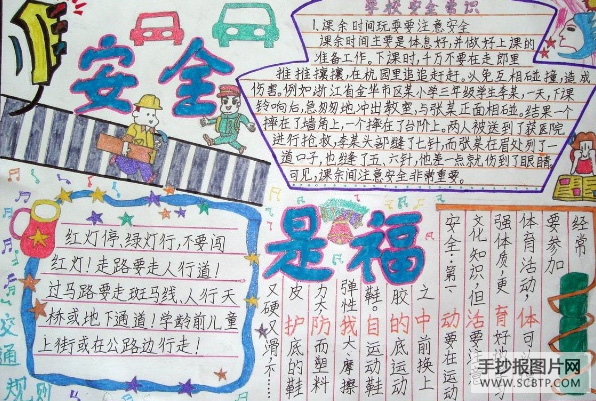 学校安全常识
1.课余时间玩耍要注意安全
课余时间主要是休息好,并做好上课的
准备工作。下课时,千万不要在走郎里
推推攘攘,在校园里追追赶赶。以免互相碰撞,造成
伤害。例如浙江省金华市区某小学三年级学生李某,一天,下课
铃响后,急匆匆地冲出教室,与张某正面相碰。结果一个
摔在了墙角上,一个摔在了台阶上。两人被送到了医院
进行抢救,李某头部缝了七针,而张某在眉处列了一
道口子,也缝了五、六针,他差一点就伤到了眼睛
可见,课余间注意安全非常重要。
安全
是福
红灯停,绿灯行,不要闯
红灯!走路要走人行道!
过马路要走斑马线、人行天
桥或地下通道!学龄前儿童
上街或在公路边行走!
交通
规则
体育活动中的自我防护
经常
要参加
体育活动,可
强体质,更好
文化知识,但要注意
安全:第一要在运动
之前换上
胶底运动
鞋。运动鞋
弹性大、摩擦
力大而塑料
皮底的鞋
又硬又滑不
手抄报图片网
WWW.SCBTP.COM